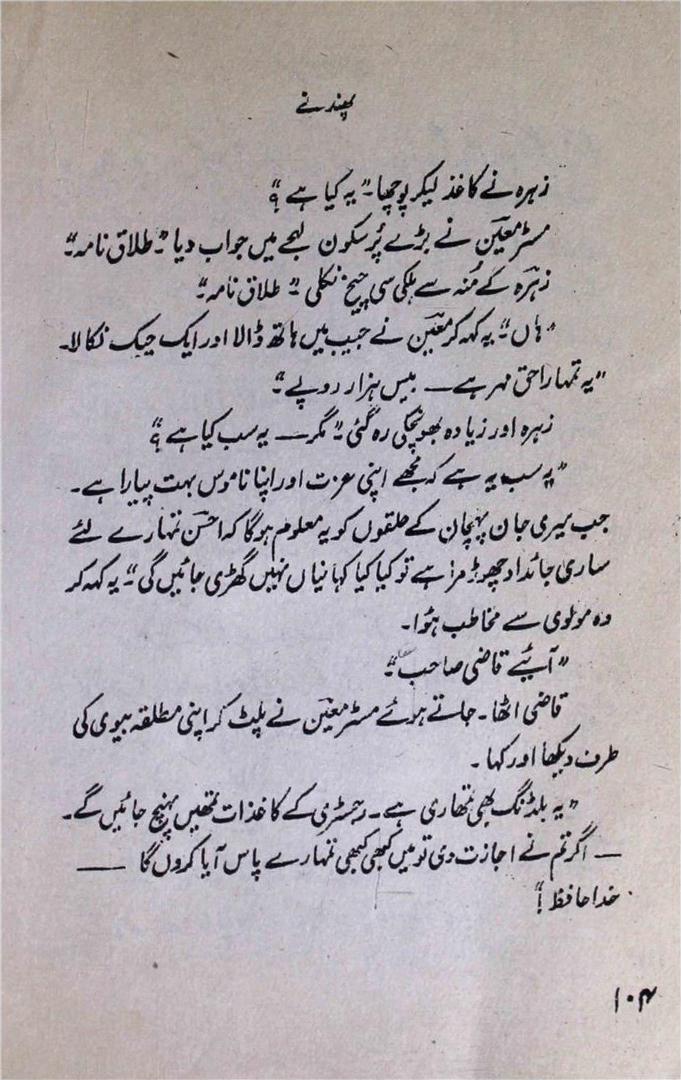 پھندنے
زہرہ نے کاغذ لیکر پوچھا۔ "یہ کیا ہے؟"
مسٹر معین نے بڑے پُرسکون لہجے میں جواب دیا "۔ طلاق نامہ۔"
زہرہ کے مُنہ سے ہلکی سی چیخ نکلی "۔ طلاق نامہ۔"
"ہاں۔" یہ کہہ کر معین نے جیب میں ہاتھ ڈالا اور ایک چیک نکالا۔
"یہ تمہارا حق مہر ہے — بیس ہزار روپے۔"
زہرہ اور زیادہ بھونچکی رہ گئی۔ "مگر — یہ سب کیا ہے؟"
"یہ سب یہ ہے کہ مجھے اپنی عزت اور اپنا ناموس بہت پیارا ہے۔
جب میری جان پہچان کے حلقوں کو یہ معلوم ہوگا کہ احسن تمہارے لئے
ساری جائداد چھوڑ مرا ہے تو کیا کیا کہانیاں نہیں گھڑی جائیں گی۔" یہ کہہ کر
وہ مولوی سے مخاطب ہؤا۔
"آیئے قاضی صاحب۔"
قاضی اٹھا۔ جاتے ہوئے مسٹر معین نے پلٹ کر اپنی مطلقہ بیوی کی
طرف دیکھا اور کہا۔
"یہ بلڈنگ بھی تمھاری ہے۔ رجسٹری کے کاغذات تمھیں پہنچ جائیں گے۔
— اگر تم نے اجازت دی تو میں کبھی کبھی تمہارے پاس آیا کروں گا —
خدا حافظ!"
۱۰۴